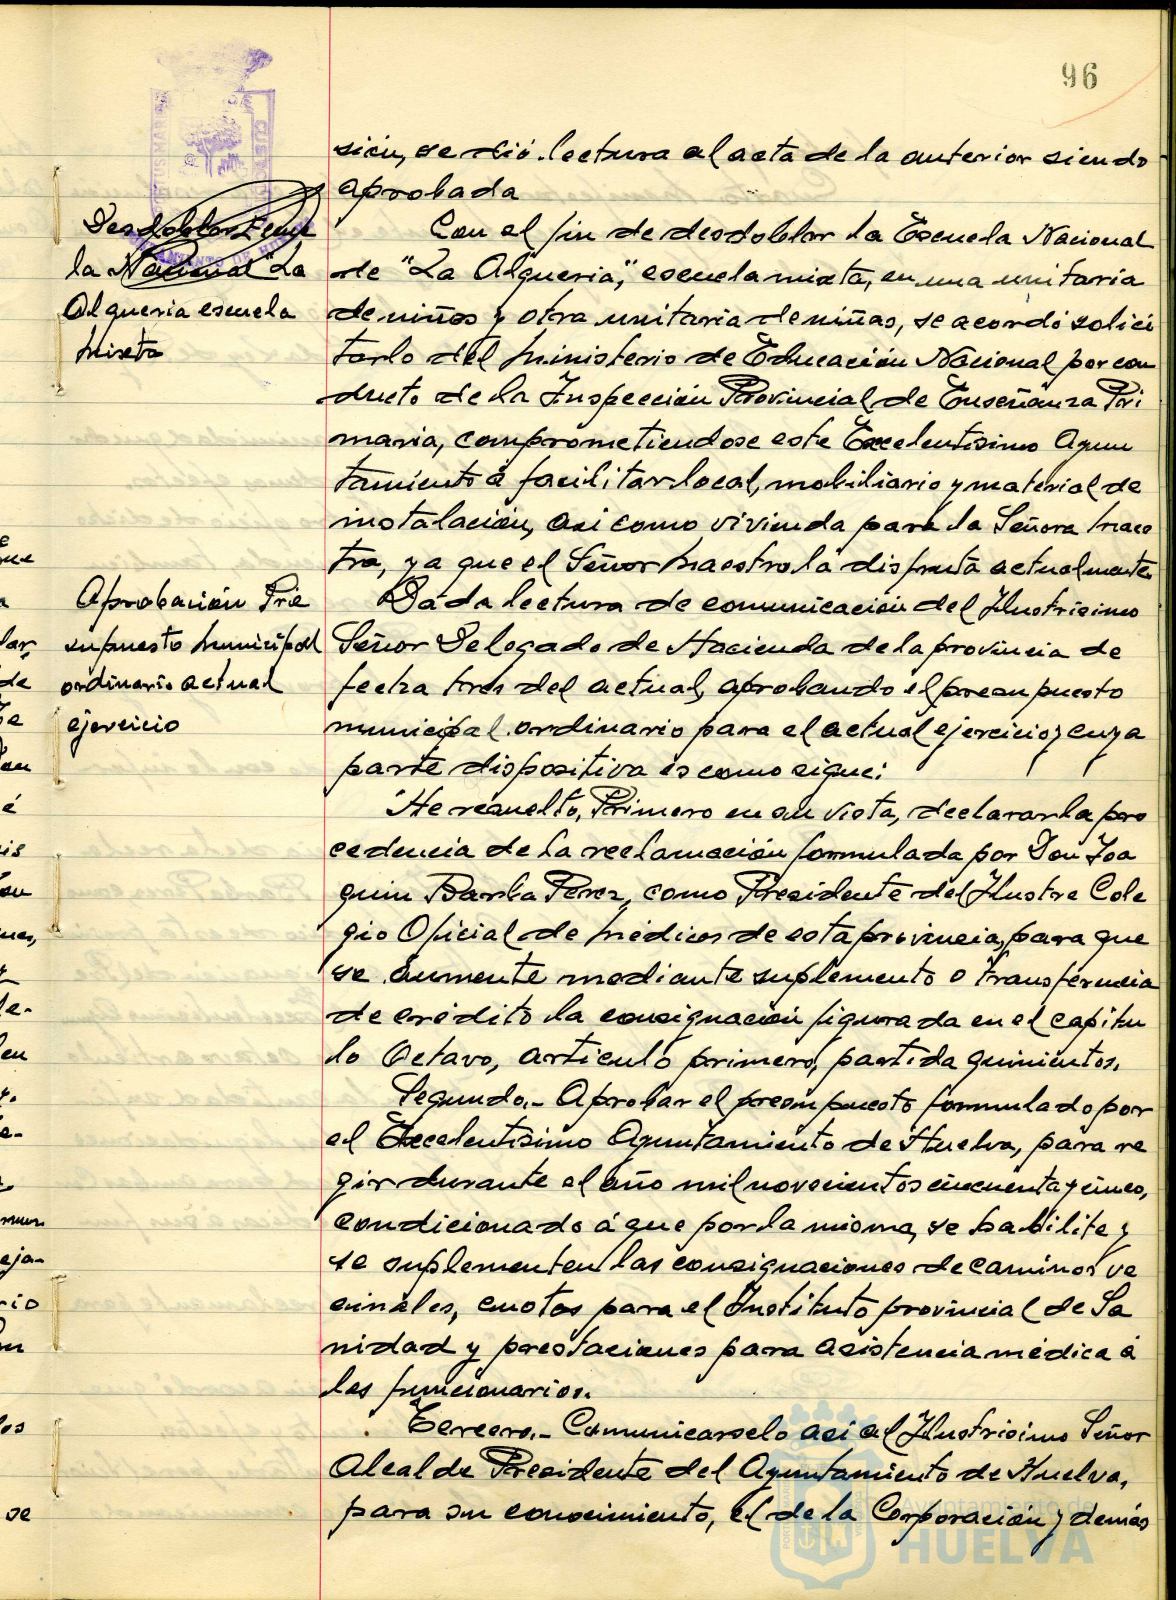 96
sión, se dió lectura al acta de la anterior siendo
aprobada
Desdoblar Escue
la Nacional "La
Alqueria escuela
mixta
Con el fin de desdoblar la Escuela Nacional
de "La Alqueria", escuela mixta, en una unitaria
de niños y otra unitaria de niñas, se acordó solici
tarlo del Ministerio de Educación Nacional por con
ducto de la Inspección Provincial de Enseñanza Pri
maria, comprometiendose este Excelentisimo Ayun
tamiento á facilitar local, mobiliario y material de
instalación, asi como vivienda para la Señora Maes
tra, ya que el Señor Maestro la disfruta actualmente
Aprobación Pre
supuesto municipal
ordinario actual
ejercicio
Dada lectura de comunicación del Ilustrisimo
Señor Delegado de Hacienda de la provincia de
fecha tres del actual, aprobando el presupuesto
municipal ordinario para el actual ejercicio y cuya
parte dispositiva es como sigue:
"He resuelto, Primero en su vista, declarar la pro
cedencia de la reclamación formulada por Don Joa
quin Barba Perez, como Presidente del Ilustre Cole
gio Oficial de Médicos de esta provincia, para que
se aumente mediante suplemento o transferencia
de crédito la consignación figurada en el capitu
lo Octavo, articulo primero, partida quinientos.
Segundo.- Aprobar el presupuesto formulado por
el Excelentisimo Ayuntamiento de Huelva, para re
gir durante el año mil novecientos cincuenta y cinco,
condicionado á que por la misma, se habilite y
se suplementen las consignaciones de caminos ve
cinales, cuotas para el Instituto provincial de Sa
nidad y prestaciones para asistencia médica á
los funcionarios.
Tercero.- Comunicarselo asi al Ilustrisimo Señor
Alcalde Presidente del Ayuntamiento de Huelva,
para su conocimiento, el de la Corporación y demás
Ayuntamiento de
HUELVA